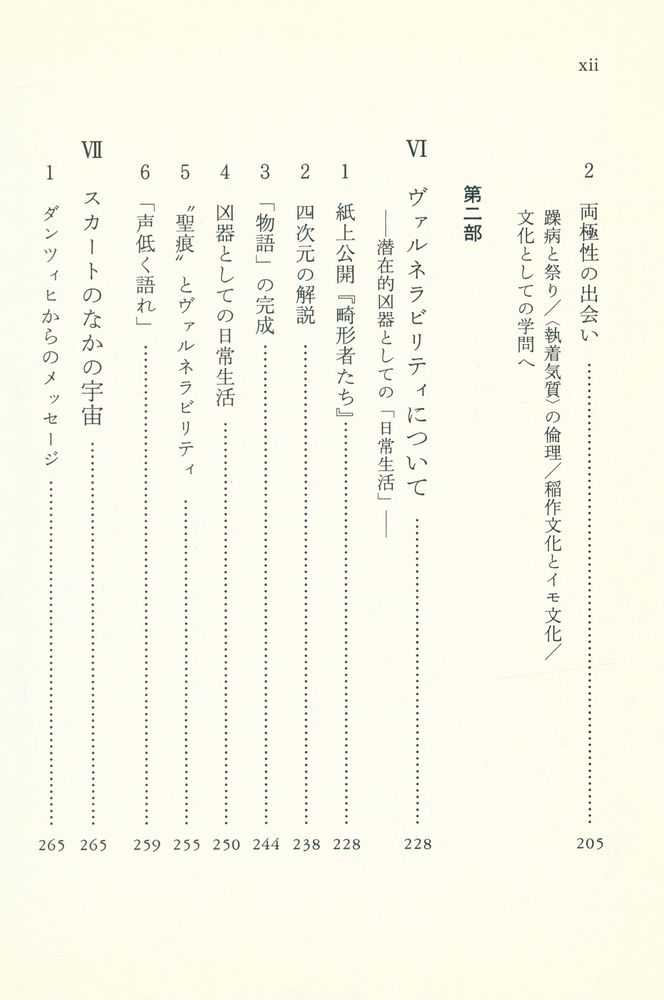 xii
2 両極性の出会い……205
躁病と祭り／〈執着気質〉の倫理／稲作文化とイモ文化／
文化としての学問へ
第二部
Ⅵ ヴァルネラビリティについて……228
――潜在的凶器としての「日常生活」――
1 紙上公開『畸形者たち』……228
2 四次元の解説……238
3 「物語」の完成……244
4 凶器としての日常生活……250
5 〝聖痕〟とヴァルネラビリティ……255
6 「声低く語れ」……259
Ⅶ スカートのなかの宇宙……265
1 ダンツィヒからのメッセージ……265